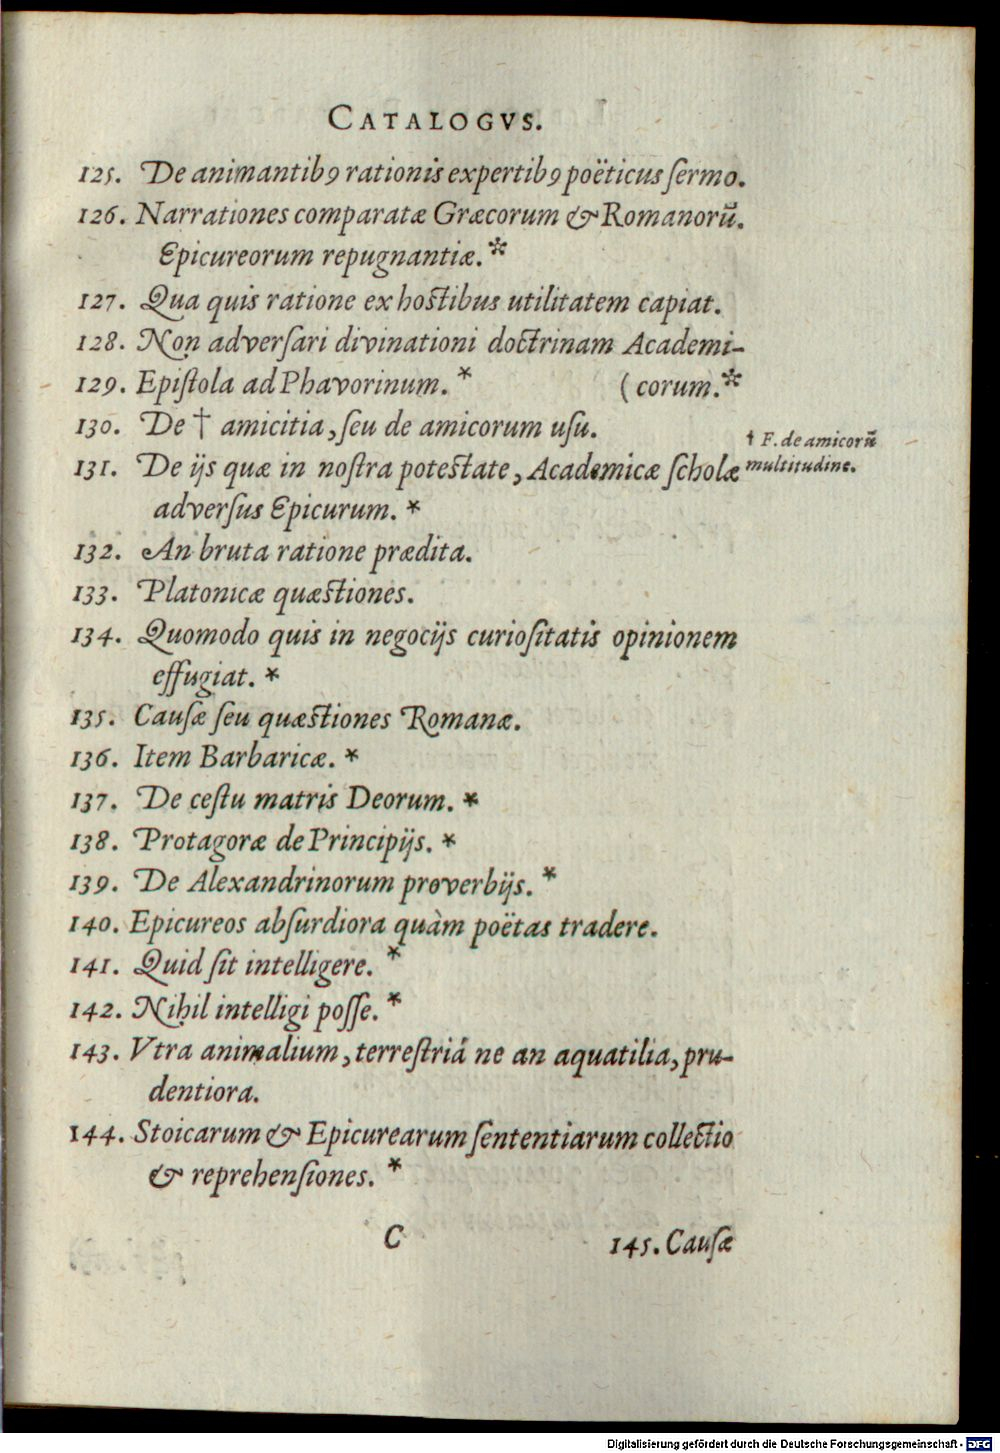 CATALOGVS.
125. De animantibꝰ rationis expertibꝰ poëticus ſermo.
126. Narrationes comparatæ Græcorum & Romanorū.
Epicureorum repugnantiæ.*
127. Qua quis ratione ex hostibus utilitatem capiat.
128. Non adverſari divinationi doctrinam Academi-
129. Epiſtola ad Phavorinum.* (corum.*
130. De † amicitia, ſeu de amicorum uſu.
† F. de amicorū
multitudine.
131. De ijs quæ in noſtra potestate, Academicæ ſcholæ
adverſus Epicurum. *
132. An bruta ratione prædita.
133. Platonicæ quæstiones.
134. Quomodo quis in negocijs curioſitatis opinionem
effugiat. *
135. Cauſæ ſeu quæstiones Romanæ.
136. Item Barbaricæ. *
137. De ceſtu matris Deorum. *
138. Protagoræ de Principijs. *
139. De Alexandrinorum proverbijs. *
140. Epicureos abſurdiora quàm poëtas tradere.
141. Quid ſit intelligere. *
142. Nihil intelligi poſſe. *
143. Vtra animalium, terreſtriá ne an aquatilia, pru-
dentiora.
144. Stoicarum & Epicurearum ſententiarum collectio
& reprehenſiones. *
C
145. Cauſæ
Digitalisierung gefördert durch die Deutsche Forschungsgemeinschaft - DFG